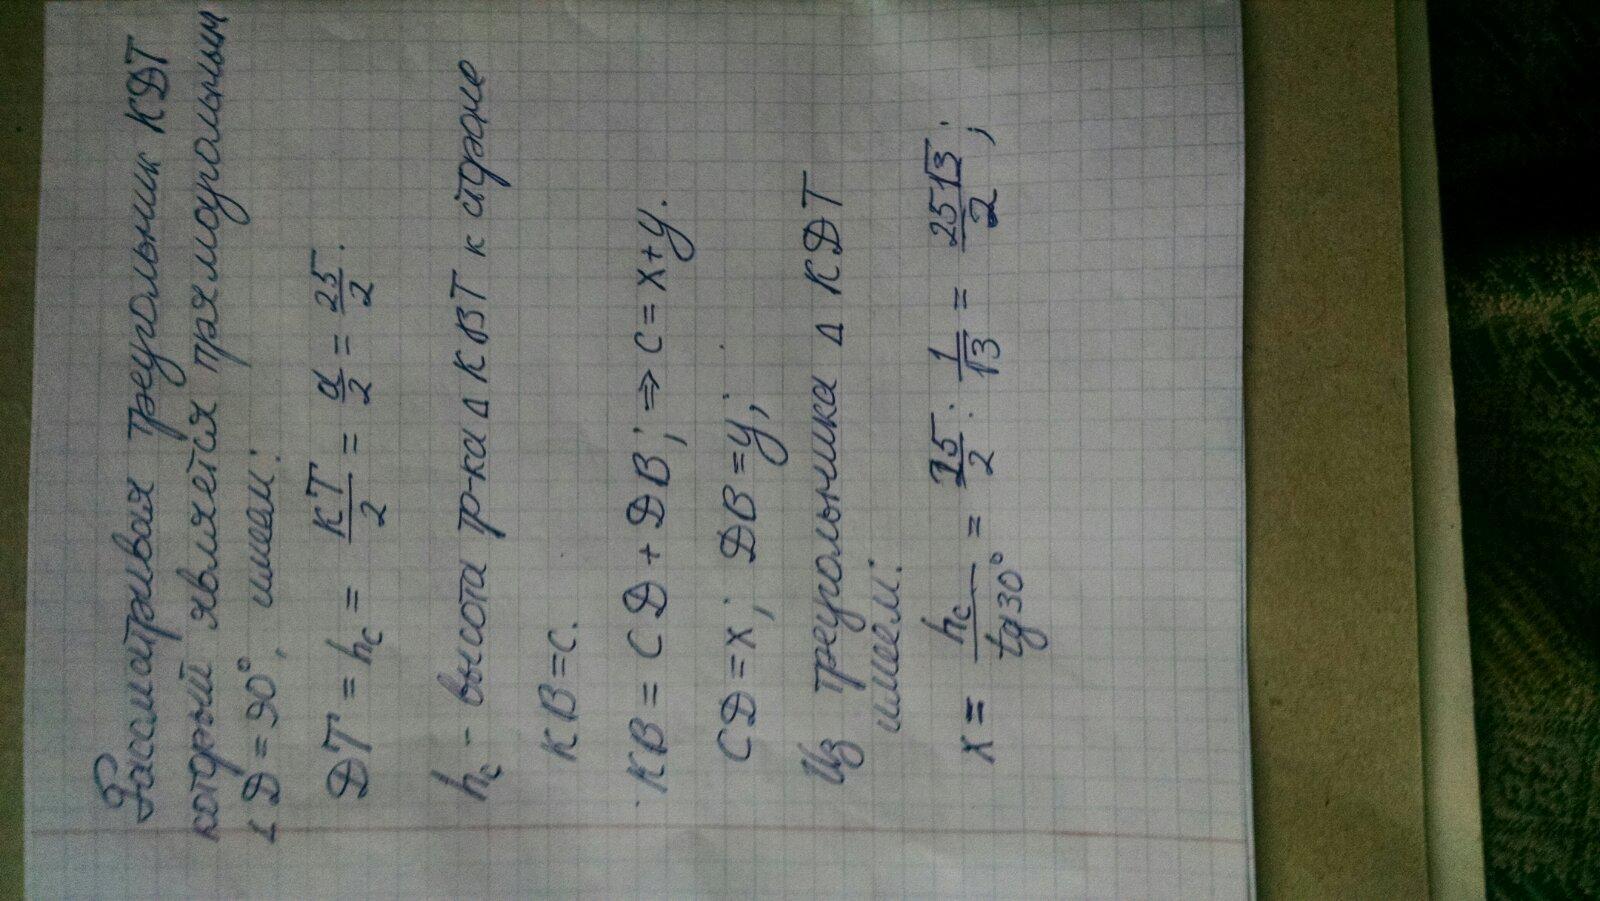 Рассматривая треугольник КДТ
который является прямоугольным
∠Д=90°, имеем:
ДТ = h_c = КТ/2 = a/2 = 25/2.
h_c - высота тр-ка Δ КВТ к стороне
КВ=с.
КВ = СД + ДВ; ⇒ с = х+у.
СД=х; ДВ=у;
Из треугольника Δ КДТ
имеем:
х = h_c/tg30° = 25/2 : 1/√3 = 25√3/2;